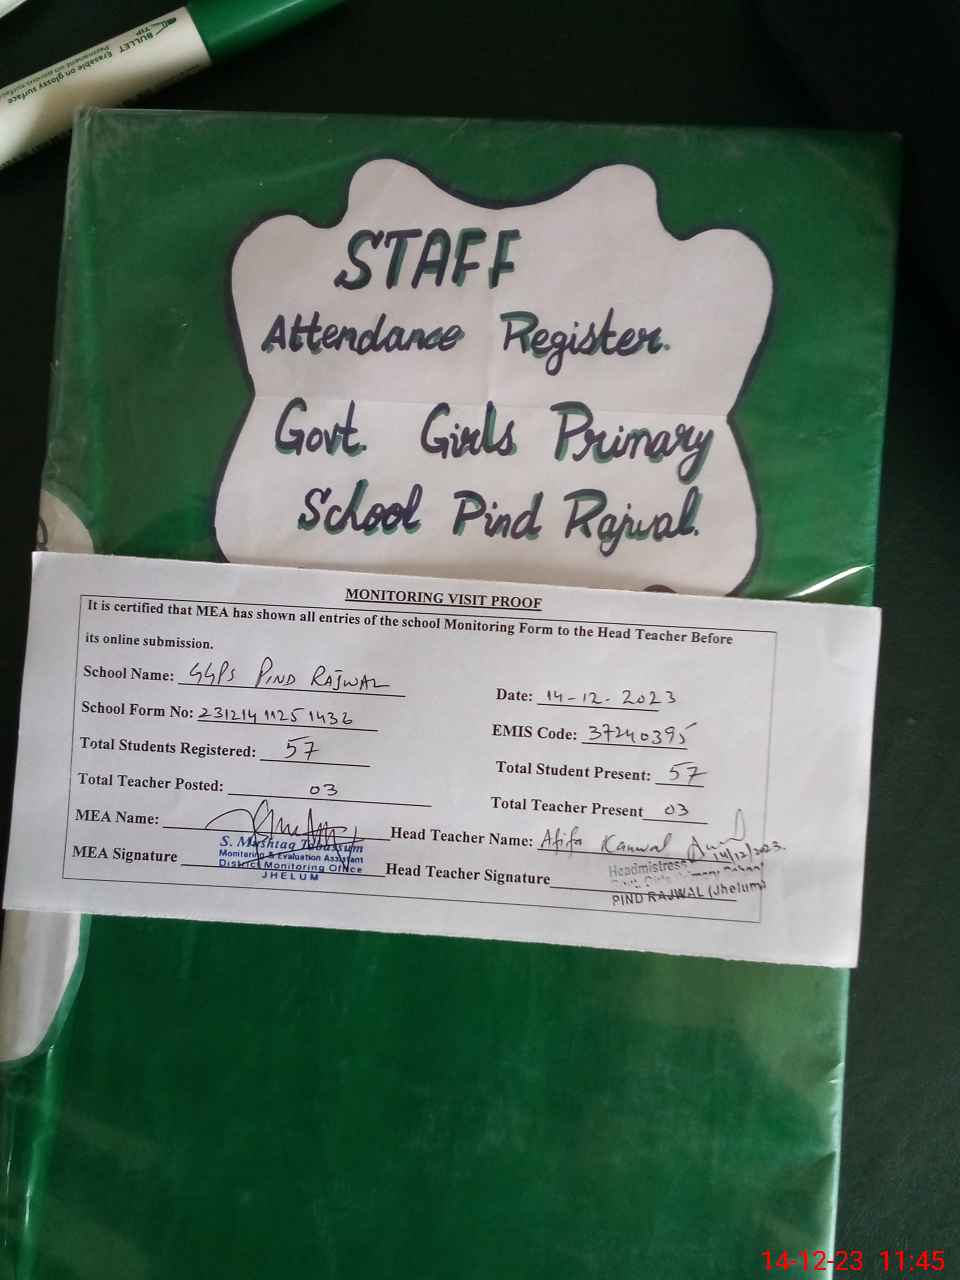 BULLET TIP
Erasable on glossy surface
STAFF
Attendance Register.
Govt. Girls Primary
School Pind Rajwal.
MONITORING VISIT PROOF
It is certified that MEA has shown all entries of the school Monitoring Form to the Head Teacher Before
its online submission.
School Name: GGPS PIND RAJWAL
Date: 14-12-2023
School Form No: 23121411251436
EMIS Code: 37240395
Total Students Registered: 57
Total Student Present: 57
Total Teacher Posted: 03
Total Teacher Present 03
MEA Name:
Head Teacher Name: Afifa Kanwal
14/12/2023
S. Mushtaq Tabassum
Monitoring & Evaluation Assistant
District Monitoring Office
JHELUM
MEA Signature
Head Teacher Signature
Headmistress
Govt. Girls Primary School
PIND RAJWAL (Jhelum)
14-12-23 11:45